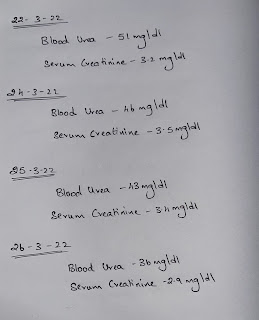 22-3-22
Blood Urea - 51 mg/dl
Serum Creatinine - 3.2 mg/dl
24-3-22
Blood Urea - 46 mg/dl
Serum Creatinine - 3.5 mg/dl
25-3-22
Blood Urea - 43 mg/dl
Serum Creatinine - 3.4 mg/dl
26-3-22
Blood Urea - 36 mg/dl
Serum Creatinine - 2.9 mg/dl